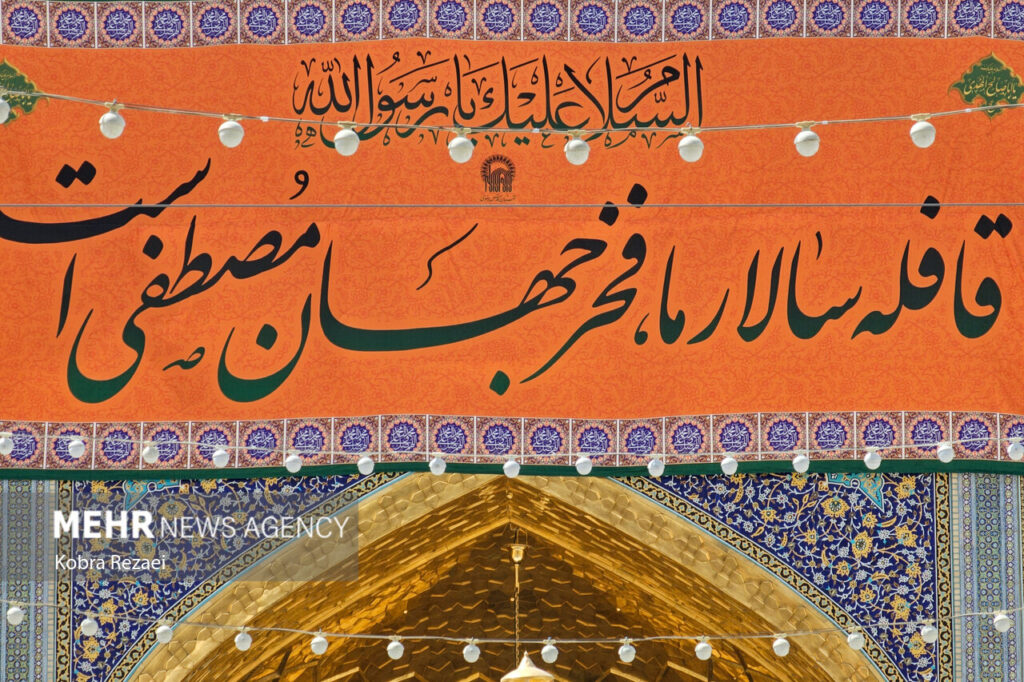 السَّلامُ عَلَيْكَ يا رَسُولَ اللّٰه
قافله سالار ما، فخر جهان مُصطفیٰ است
MEHR NEWS AGENCY
Kobra Rezaei